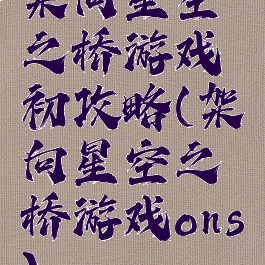 架向星空
之桥游戏
初攻略(架
向星空之
桥游戏ons
)